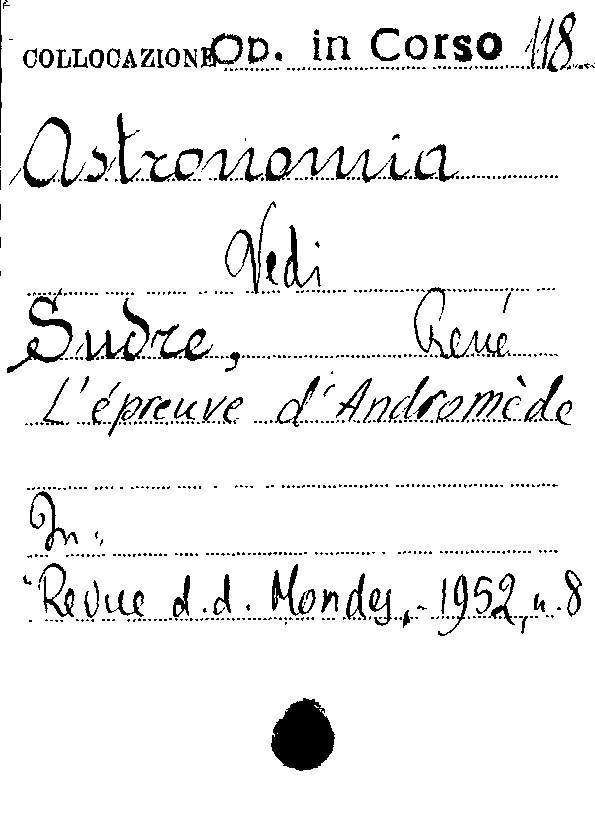 COLLOCAZIONE OP. in Corso 118
Astronomia
Vedi
Sudre, René
L'épreuve d'Andromède
In:
"Revue d.d. Mondes, - 1952, n. 8